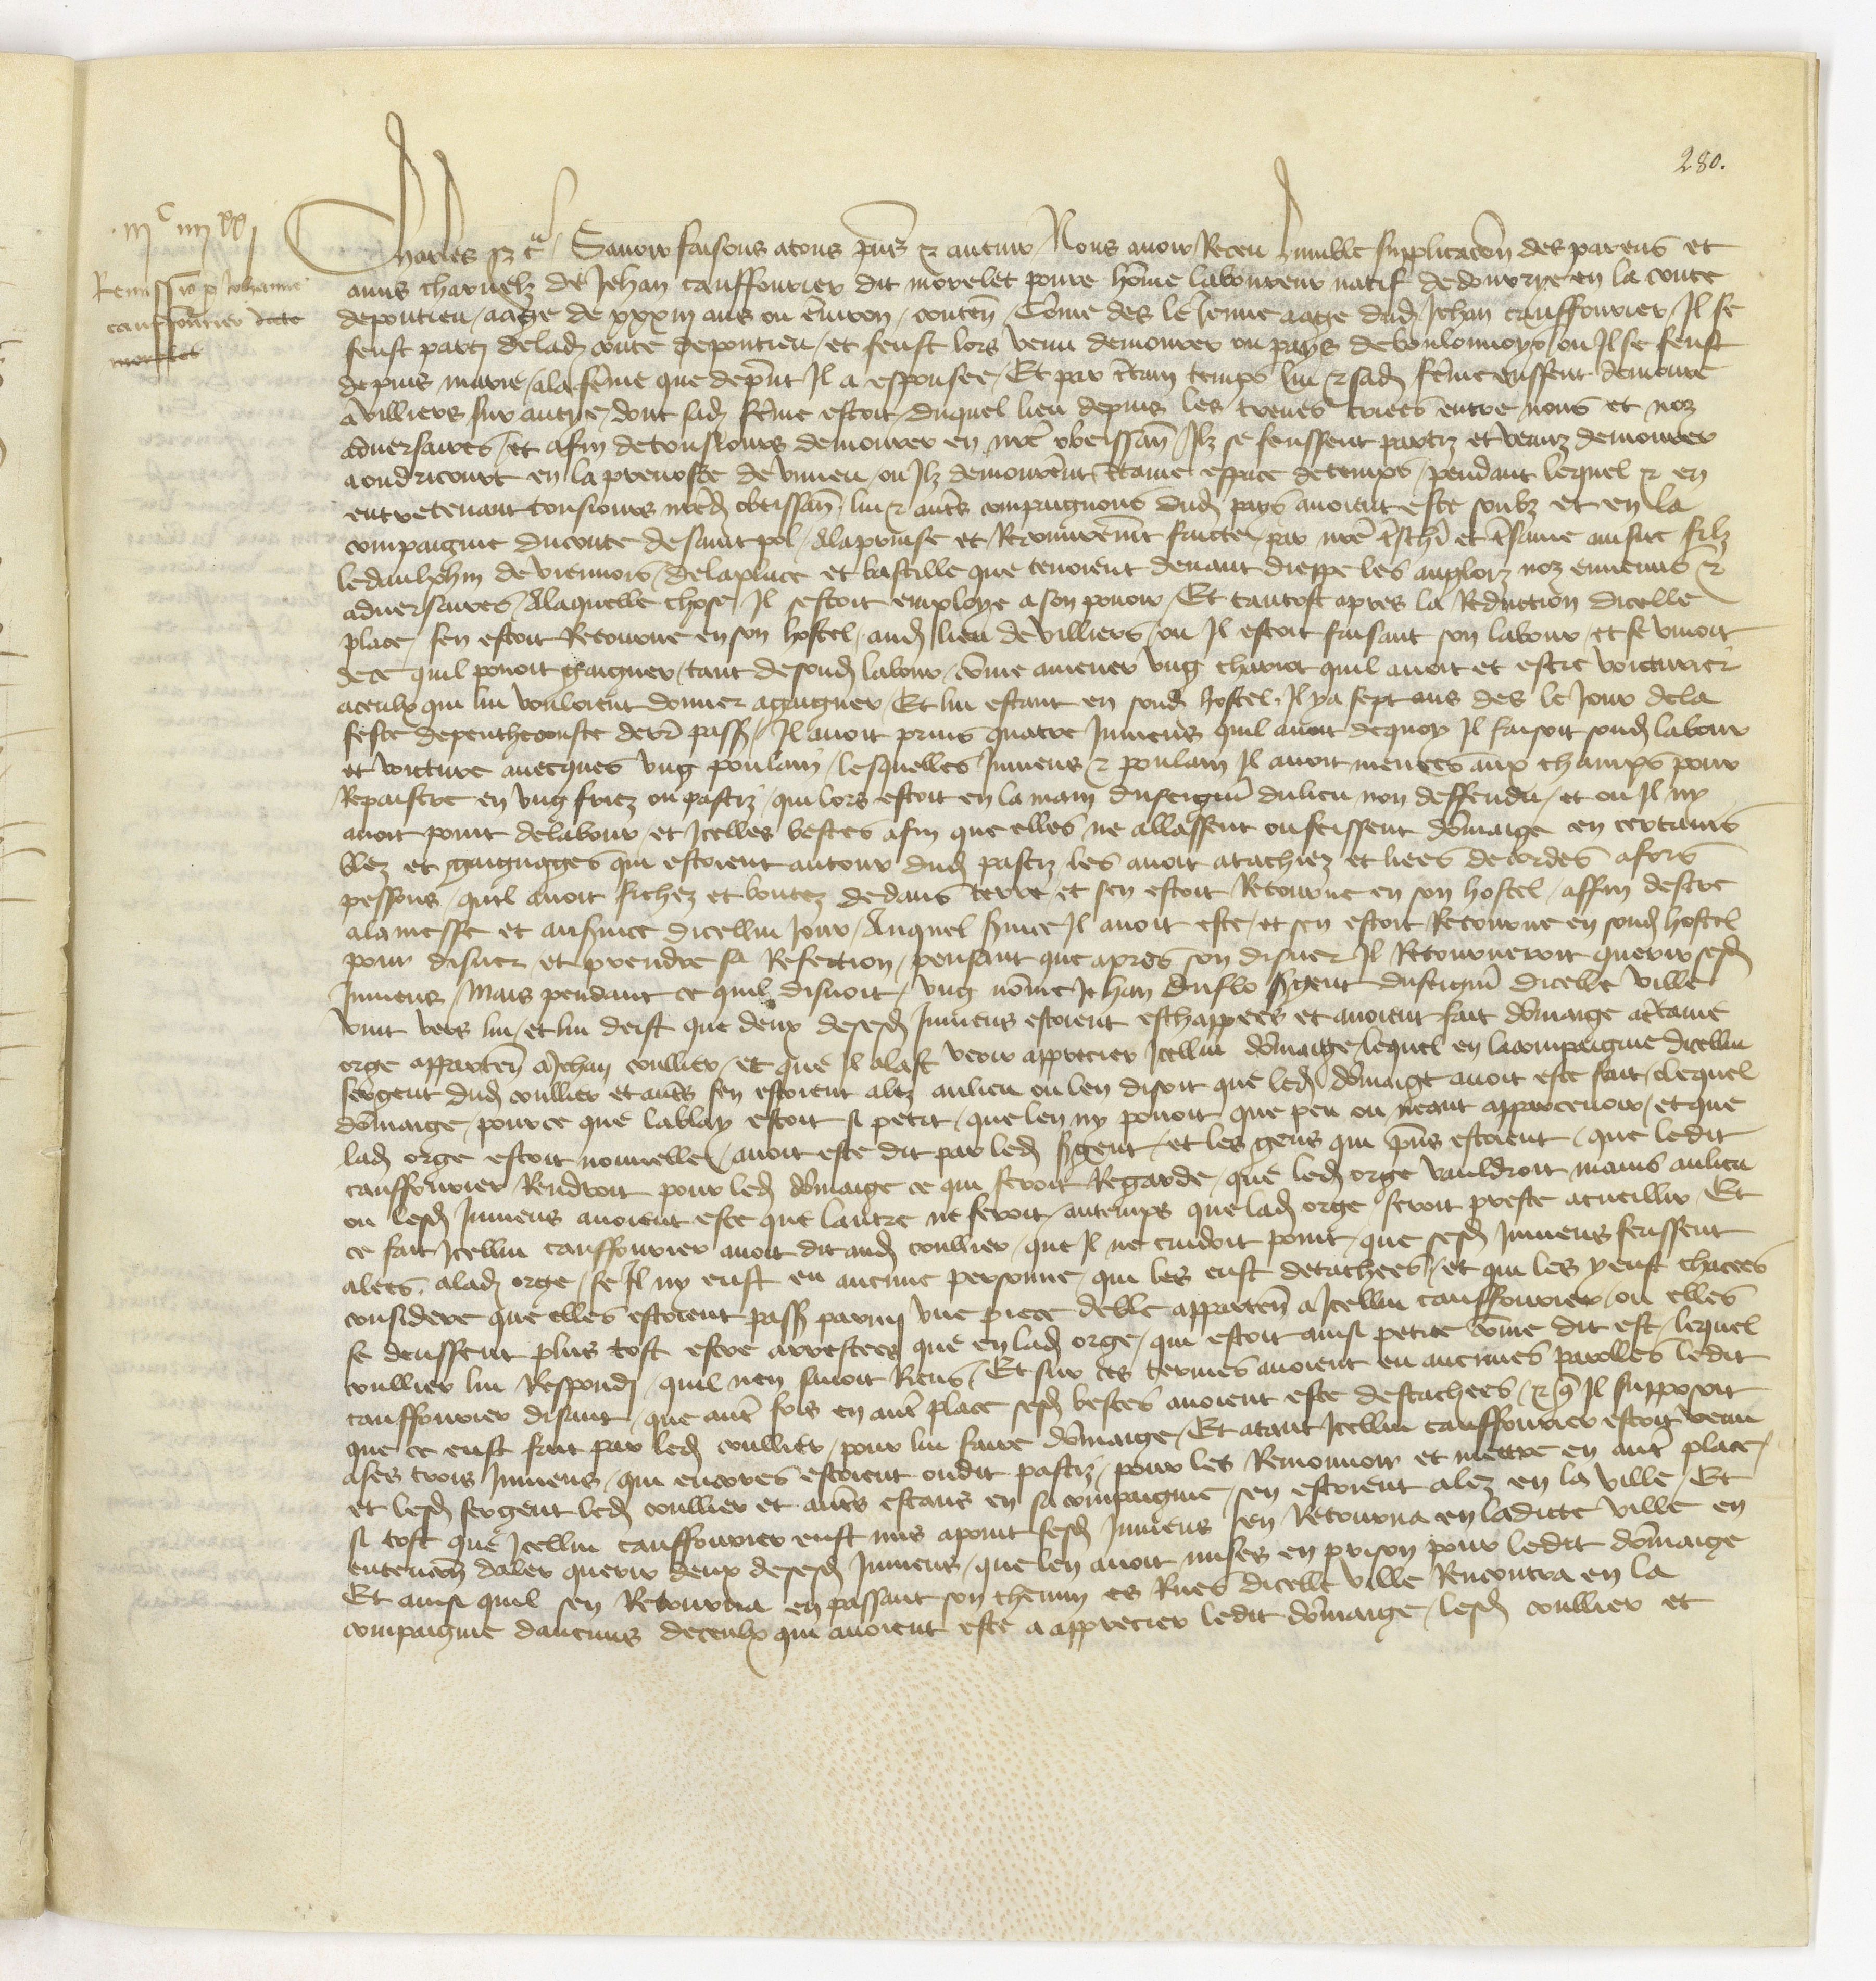 280.
iijc iiijxx j
Remissio pro Johanne
cauffourier dicto
morelet
Charles etc. Savoir faisons a tous pñs et avenir Nous avoir Receu humble supplicacõn des parens et
amis charnelz de Jehan cauffourier dit morelet povre hõme laboureur natif de dourrye en la conte
de pontieu / aagie de xxxiij ans ou environ / contenñ Cõme des le Jeune aage dud Jehan cauffourier / Il se
feust parti de lad conte de pontieu / et feust lors venu demourer ou pays de boulonnoys / ou Il se feust
depuis marie / a la fẽme que de pñt Il a espousee / Et par c̃tain temps lui et sad fẽme eussent demoure
a villiers sur autye / dont sad fẽme estoit / duquel lieu depuis les treues criees entre nous et noz
adversaires / et afin de tousiours demourer en nr̃e obeissañ / Ilz se feussent partiz et venuz demourer
a ondricourt en la prevoste de vimeu / ou Ilz demourẽrent c̃taine espace de temps / pendant lequel et en
entretenant tousiours nr̃ed obeissañ / lui et autr̃s compaignons dud pays avoient este soubz et en la
compaignie du conte de saint pol / A la prinse et Recouvrem̃t faicte / par nr̃e tr̃schr̃ et tr̃same aisne filz
le daulphin de viennois / de la place et bastille que tenoient devant dieppe les anglois noz ennemis et
adversaires / A laquelle chose Il sestoit employe a son povoir / Et tantost apres la Reduction dicelle
place / sen estoit Retourne en son hostel / aud lieu de villiers / ou Il estoit faisant son labour / et se vivoit
de ce quil povoit gaigner / tant de sond labour / cõme amener ung chariot quil avoit et estre voicturier
a ceulx qui lui vouloient donner a gaigner / Et lui estant en sond hostel / Il y a sept ans des le Jour de la
feste de penthecouste derr̃ pass̃ / Il avoit prins quatre Jumens quil avoit de quoy Il faisoit sond labour
et voicture avecques ung poulain / lesquelles Jumens et poulain Il avoit menees aux champs pour
Repaistre en ung friez ou pastiz / qui lors estoit en la main du seigneur du lieu non deffendu / et ou Il ny
avoit point de labour / et Icelles bestes afin que elles ne allassent ou feissent dõmaige en certains
blez et gaignages qui estoient autour dud pastiz les avoit atachiez et liees de cordes a fors
pessons / quil avoit fichez et boutez dedans terre / et sen estoit Retourne en son hostel / affin destre
a la messe et au service dicellui Jour / Auquel service Il avoit este / et sen estoit Retourne en sond hostel
pour disner et prendre sa Refection / pensant que apres son disner Il Retourneroit querir sesd
Jumens / Mais pendant ce quil disnoit / ung nõme Jehan duflo sergent du seigneur dicelle ville
vint vers lui / et lui deist que deux de sesd Jumens estoient eschappees et avoient fait dõmaige a c̃taine
orge apparteñ a Jehan coullier / et que Il alast veoir apprecier Icellui dõmaige / lequel en la compaignie dicellui
sergent dud coullier et autr̃s sen estoient alez au lieu ou len disoit que led dõmaige avoit este fait / Lequel
dõmaige / pource que lablay estoit si petit / que len ny povoit que peu ou neant appercevoir / et que
lad orge estoit nouvelle / avoit este dit par led sergent / et les gens qui pñs estoient / que ledit
cauffourier Rendroit pour led dõmaige ce qui seroit Regarde / que led orge vauldroit mains au lieu
ou lesd Jumens avoient este que lautre ne feroit / au temps que lad orge seroit preste a cueillir / Et
ce fait Icellui cauffourier avoit dit aud coullier / que Il ne cuidoit point / que sesd Jumens feussent
alees a lad orge / se Il ny eust eu aucune personne / qui les eust detachees / et qui les y eust chacees
considere que elles estoient pass̃ parmy une piece de ble apparteñ a Icellui cauffourier / ou elles
se deussent plus tost estre arrestees que en lad orge / qui estoit ainsi petite cõme dit est / lequel
coullier lui Respondi / quil nen savoit Riens / Et sur ces termes avoient eu aucunes parolles / ledit
cauffourier disant / que autr̃ fois en autr̃ place sesd bestes avoient este destachees / et q̃ Il supposoit
que ce eust fait par led coullier / pour lui faire dõmaige / Et atant Icellui cauffourier estoit venu
a ses trois Jumens / qui encores estoient oudit pastiz / pour les Remouvoir et mettre en autr̃ place /
et lesd sergent led coullier et autr̃s estans en sa compaignie / sen estoient alez en la ville / Et
si tost que Icellui cauffourier eust mis a point sesd Jumens sen Retourna en ladicte ville en
entencõn daler querir deux de sesd Jumens / que len avoit mises en prison pour ledit dõmaige
Et ainsi quil sen Retourna en passant son chemin es Rues dicelle ville Rencontra en la
compaignie daucuns de ceulx qui avoient este a apprecier ledit dõmaige / lesd coullier et